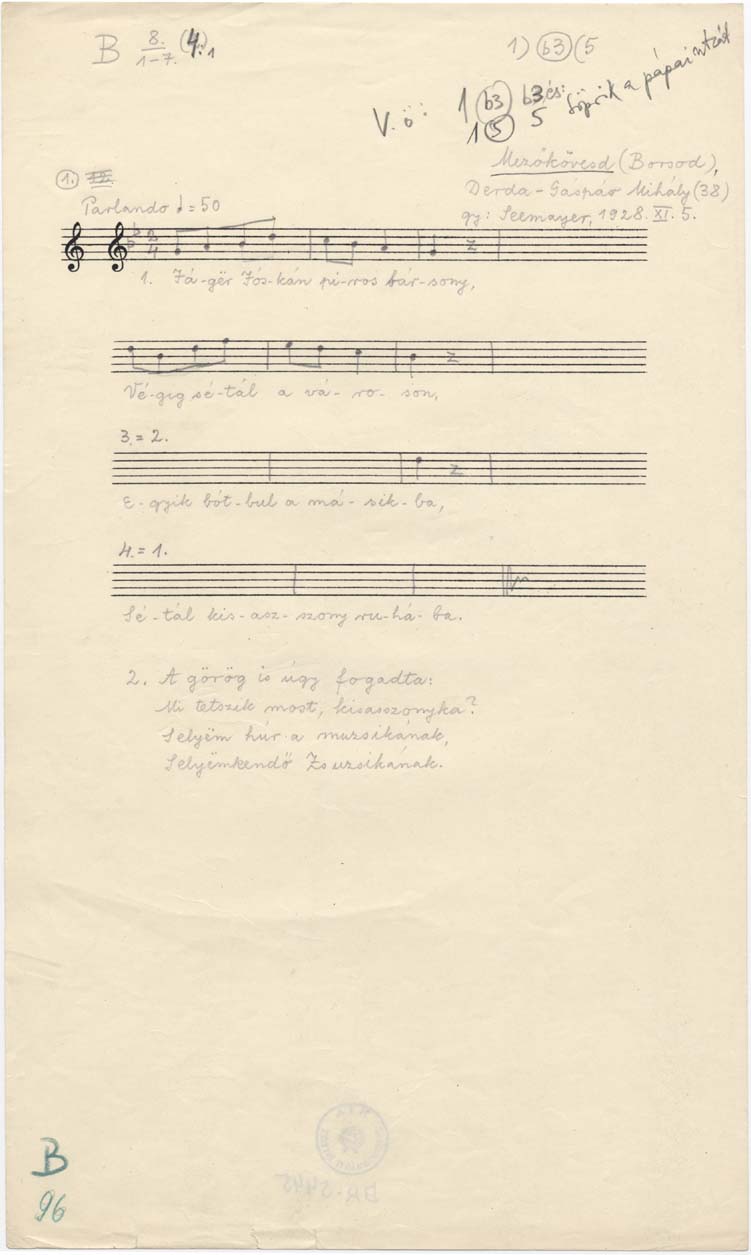 B 8. / 1-7. 4. 1
1) b3 (5
V. ö: 1 b3 b3 és: Söprik a pápai utzát
1 5 5
Mezőkövesd (Borsod),
1.
Derda-Gáspár Mihály (38)
Parlando ♩ = 50
gy: Seemayer, 1928. XI. 5.
2 4
1. Fá-gër Jós-kán pi-ros bár-sony,
Vé-gig sé-tál a vá-ro-son,
3. = 2.
E-gyik bót-bul a má-sik-ba,
4. = 1.
Sé-tál kis-asz-szony ru-há-ba.
2. A görög is úgy fogadta:
Mi tetszik most, kisasszonyka?
Selyëm húr a muzsikának,
Selyëmkendő Zsuzsikának.
BR-2442
B
96